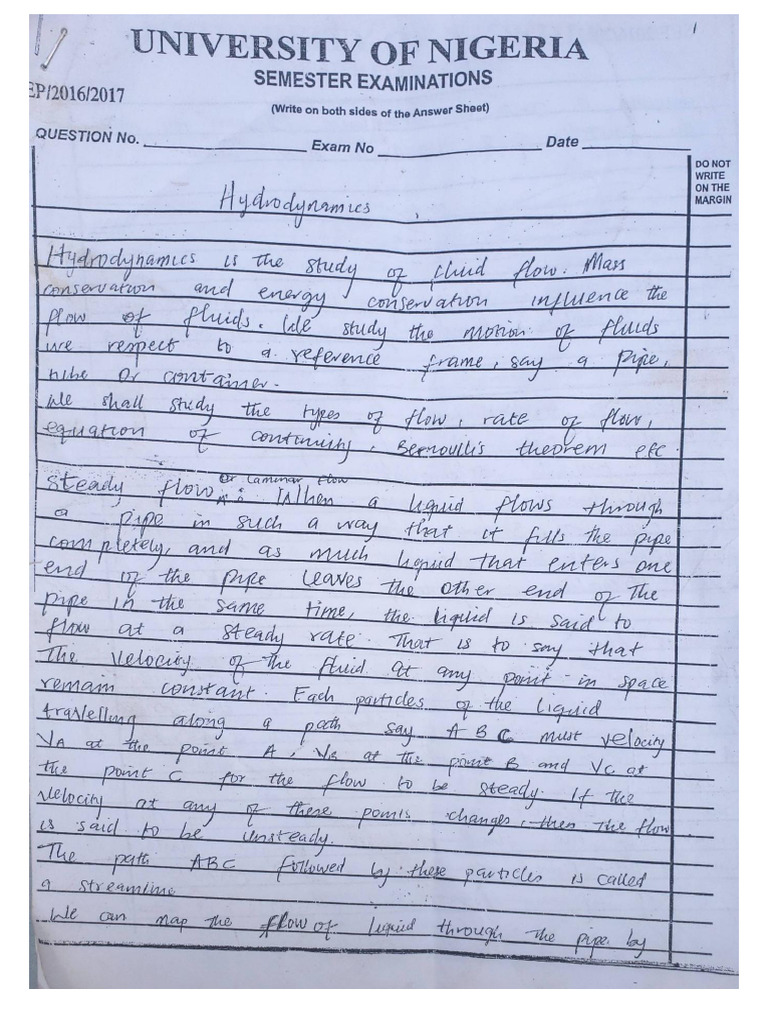 1
UNIVERSITY OF NIGERIA
SEMESTER EXAMINATIONS
EP/2016/2017
(Write on both sides of the Answer Sheet)
QUESTION No. Exam No Date
DO NOT
WRITE
ON THE
MARGIN
Hydrodynamics
Hydrodynamics is the study of fluid flow. Mass
conservation and energy conservation influence the
flow of fluids. We study the motion of fluids
we respect to a reference frame, say a pipe,
tube or container.
We shall study the types of flow, rate of flow,
equation of continuity, Bernoulli's theorem etc
Steady flow or Laminar flow : When a liquid flows through
a pipe in such a way that it fills the pipe
completely, and as much liquid that enters one
end of the pipe leaves the other end of the
pipe in the same time, the liquid is said to
flow at a steady rate. That is to say that
the velocity of the fluid at any point in space
remain constant. Each particles of the liquid
travelling along a path say A B C must velocity
VA at the point A, VB at the point B and VC at
the point C for the flow to be steady. If the
velocity at any of these points changes, then the flow
is said to be unsteady.
The path ABC followed by these particles is called
a streamline
We can map the flow of liquid through the pipe by